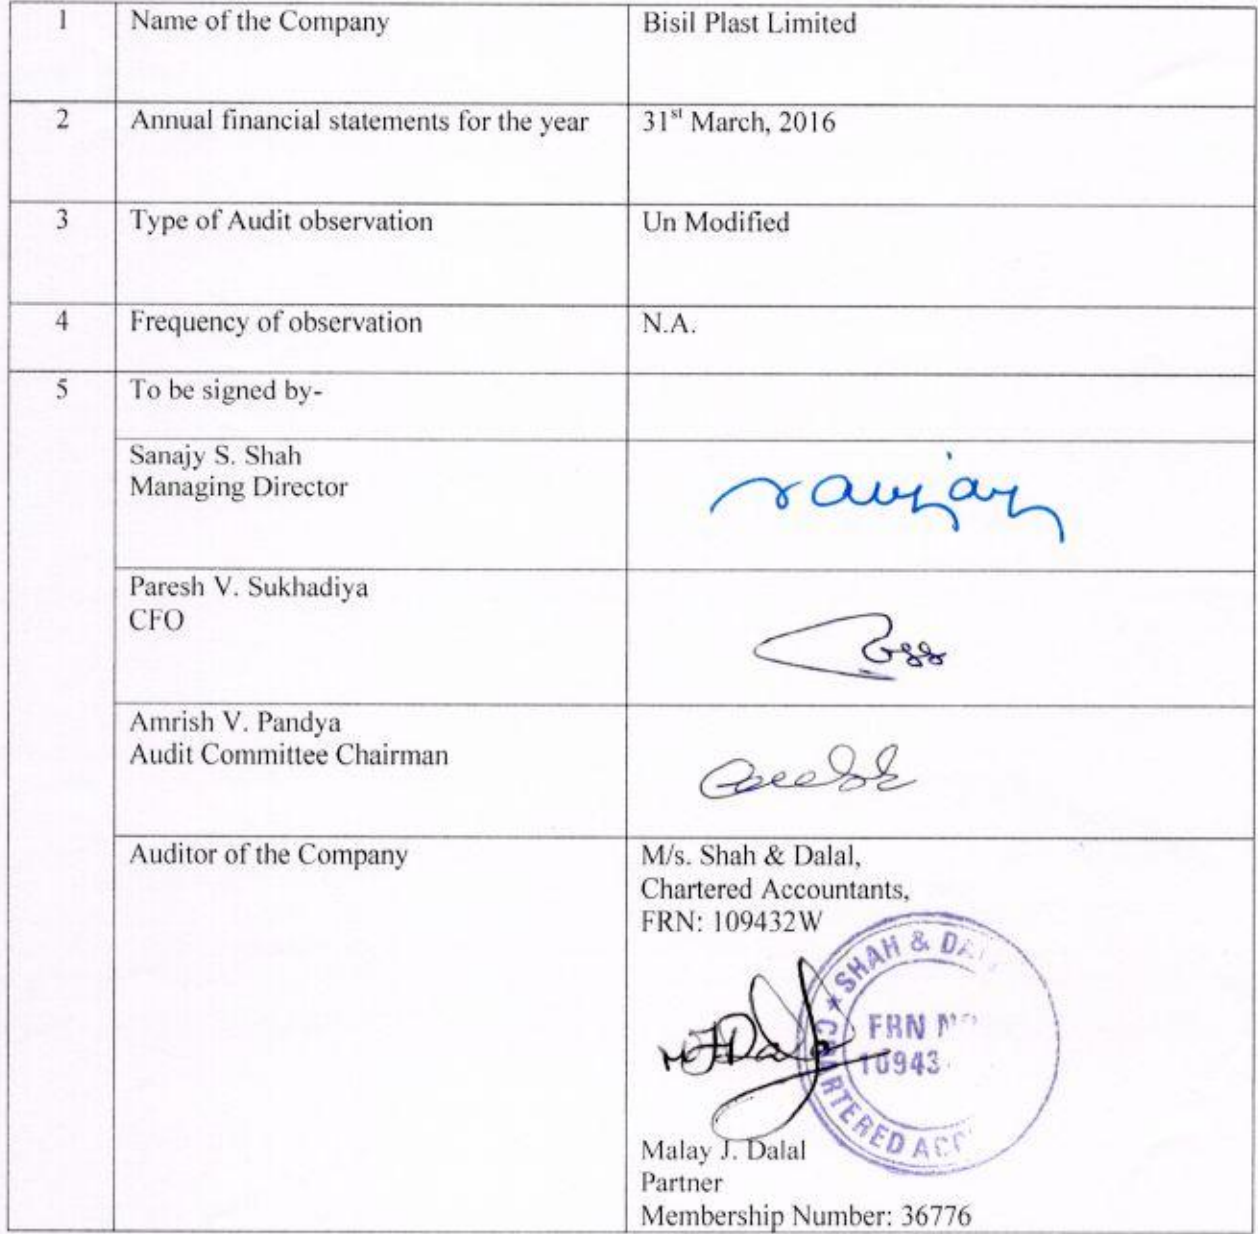 1 Name of the Company Bisil Plast Limited
2 Annual financial statements for the year 31st March, 2016
3 Type of Audit observation Un Modified
4 Frequency of observation N.A.
5 To be signed by-
Sanajy S. Shah
Managing Director
sanjay
Paresh V. Sukhadiya
CFO
Amrish V. Pandya
Audit Committee Chairman
Auditor of the Company M/s. Shah & Dalal,
Chartered Accountants,
FRN: 109432W
SHAH & DA
FRN
10943
Malay J. Dalal
Partner
Membership Number: 36776